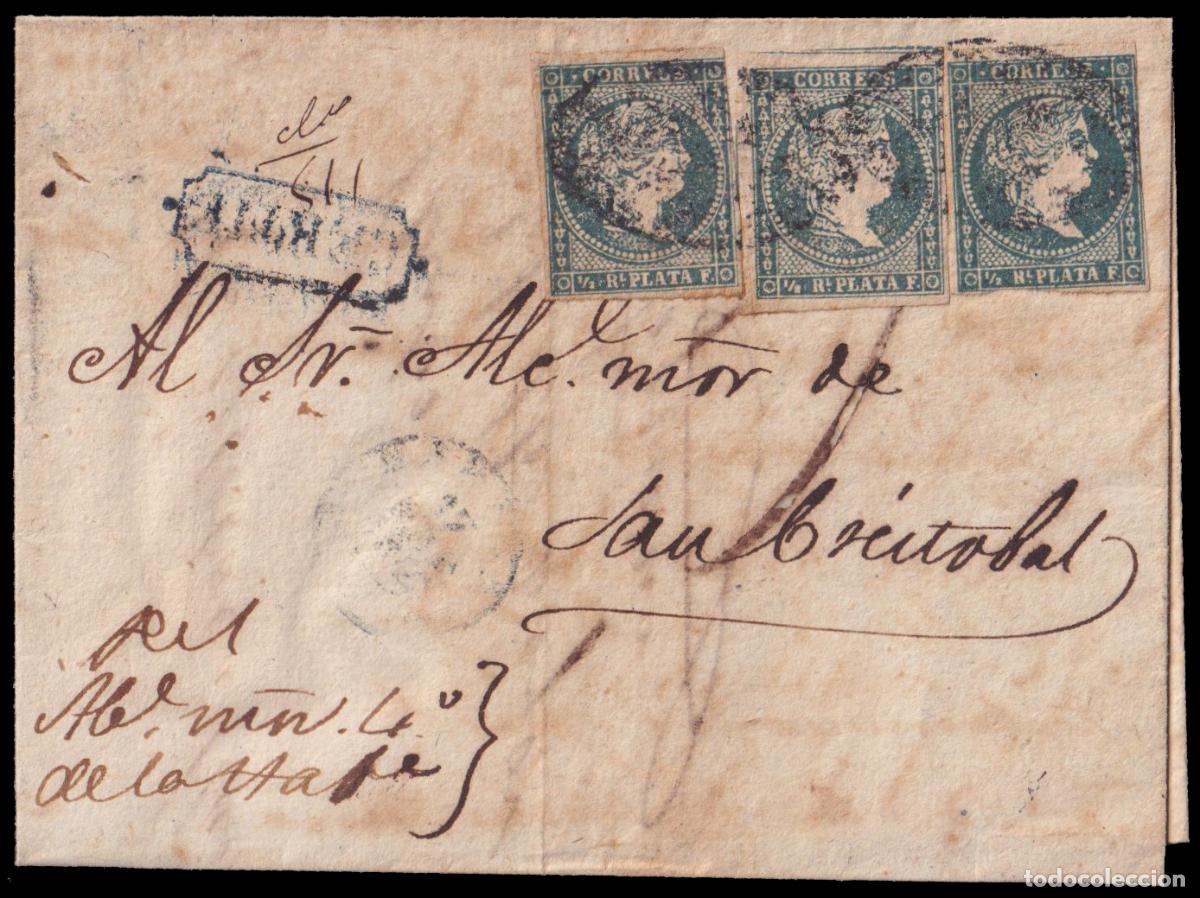 CORREOS
½ Rl. PLATA F.
CORREOS
½ Rl. PLATA F.
CORREOS
½ Rl. PLATA F.
Al Sr. Alc.e mõr de
San Cristobal
Del
Alc.e mõr. 4.o
de la Haba
todocoleccion